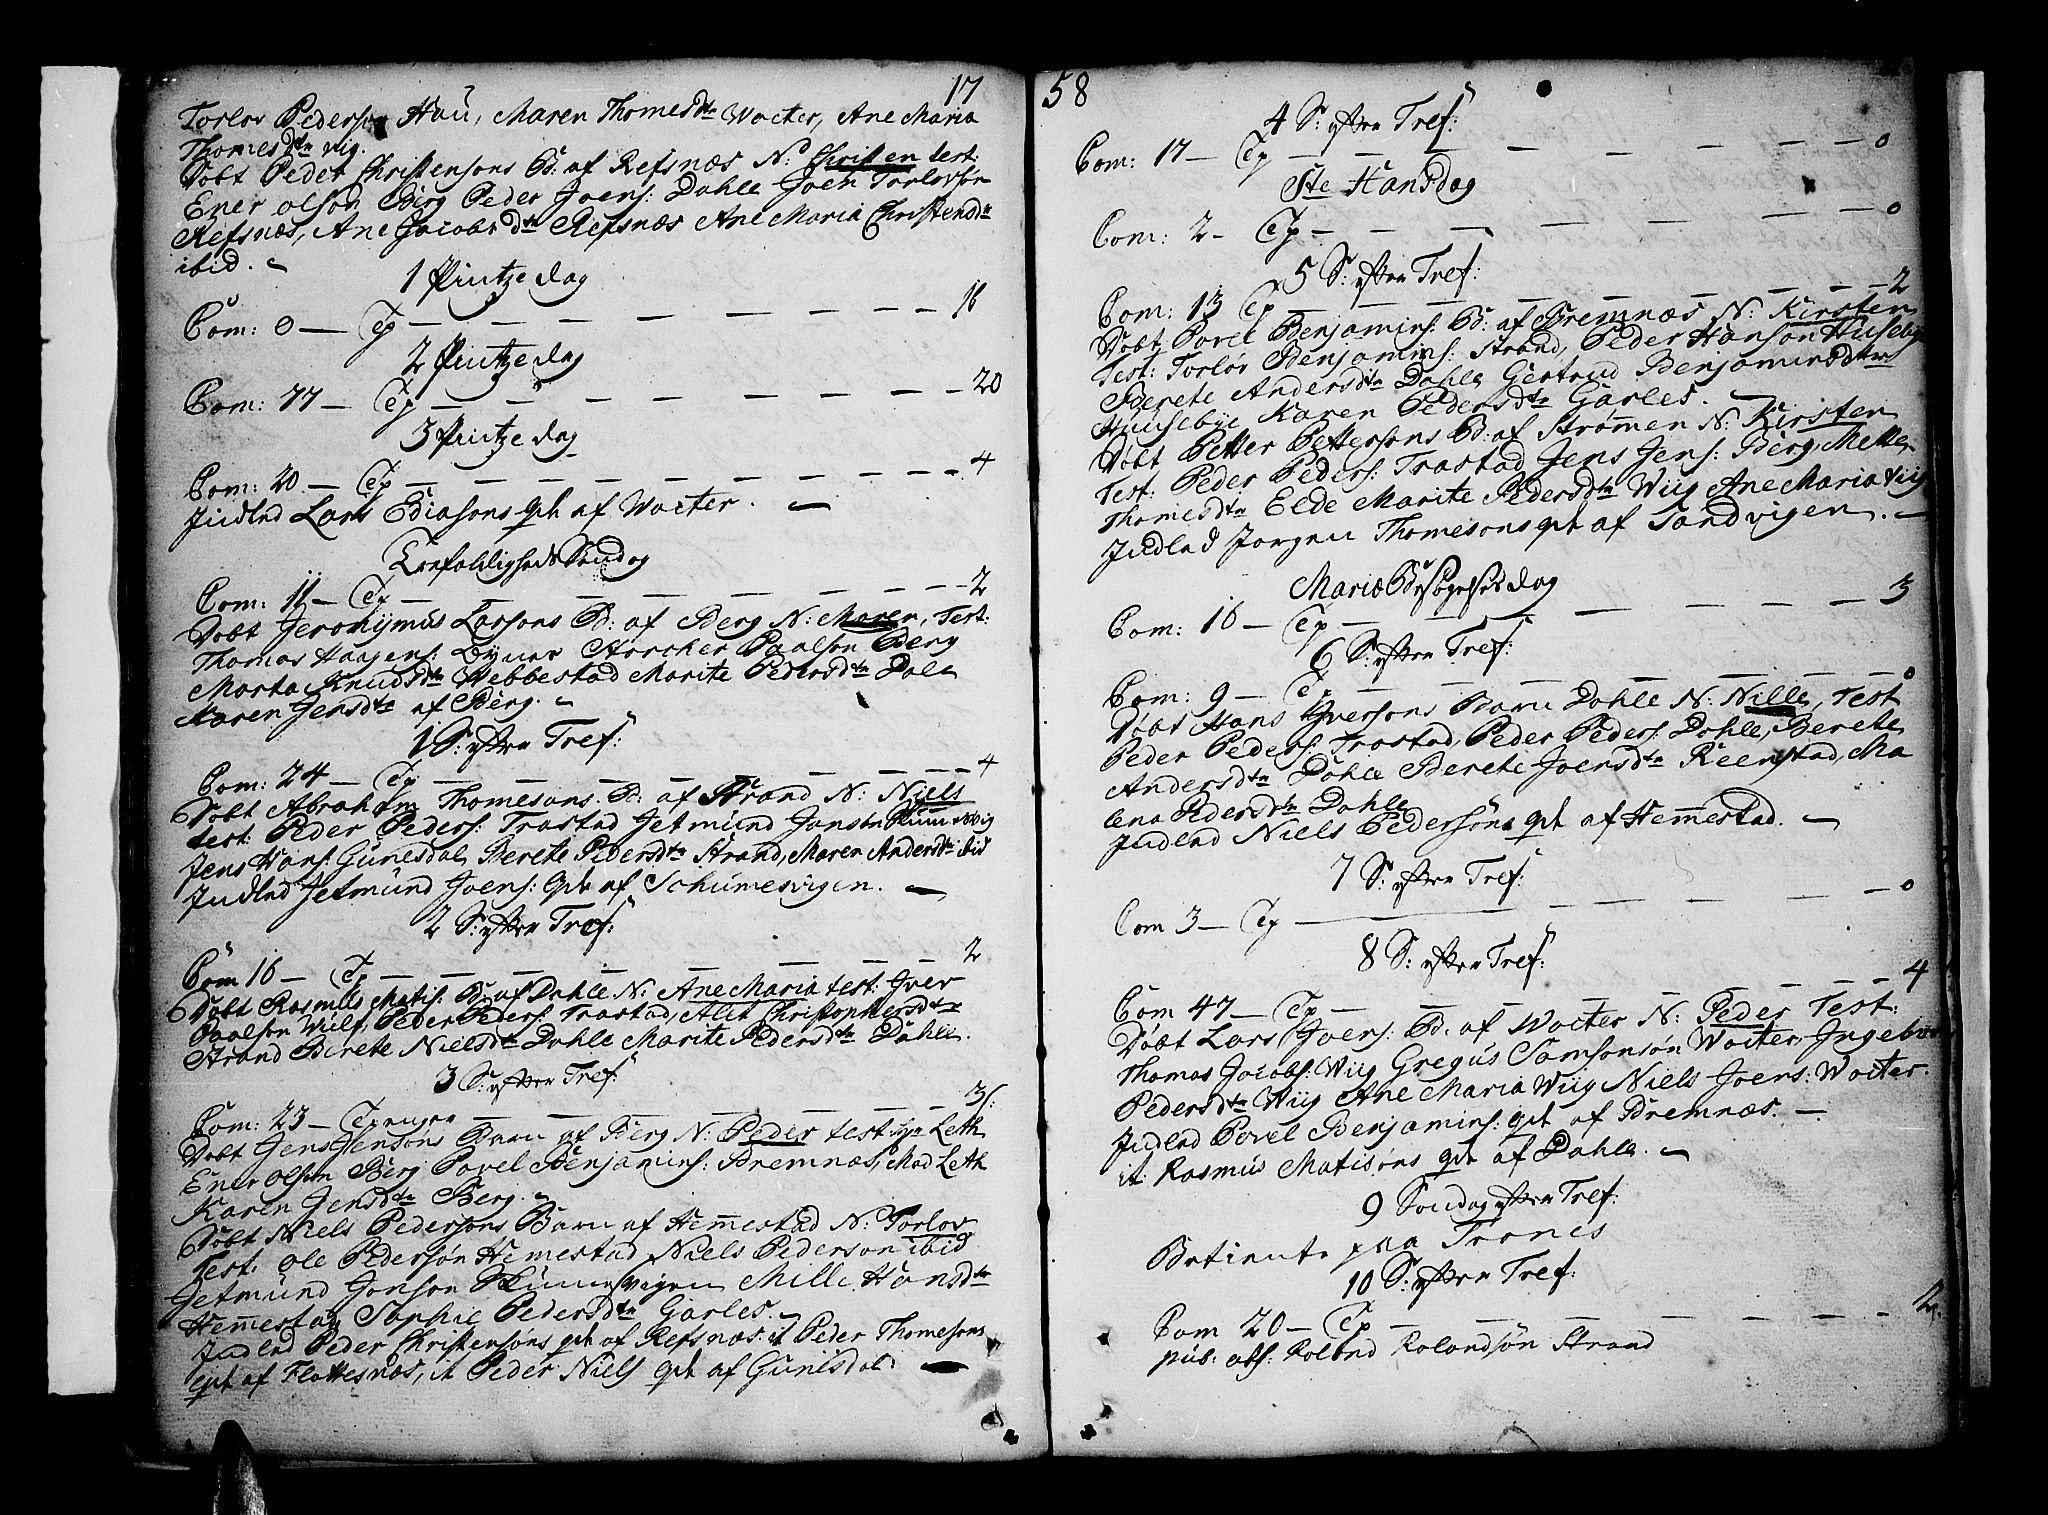 17
Torlov Pederson Hau, Maren Thomesdtr Wocter, Ane Maria
Thomesdtr wig.
Døbt Peder Christensons B: af Refsnæs N: Christen test:
Ener olson Berg Peder Joens: Dahle Joen Torlovsøn
Refsnæs, Ane Jacobsdtr Refsnæs Ane Maria Christensdtr
ibid.
1 Pintzedag
Com: 0 — Cop — 16
2 Pintzedag
Com: 77 — Cop — 20
3 Pintzedag
Com: 20 — Cop — 4
Indled Lars Ediasons qvt af Wocter.
Trefoldigheds Søndag
Com: 11 — Cop — 2
Døbt Jeronymus Larsons B: af Berg N: Maren, Test:
Thomas Hagens: Storcher Paalson Berg
Marta Knudsdtr Hebbestad Marite Pedersdtr Dale
Karen Jensdtr af Berg.
1 S: efter Tref:
Com: 24 — Cop — 4
Døbt Abraham Thomesons B: af Strand N: Niels
test: Peder Peders: Trastad Jetmund Jonsøn
Jens Hans: Gunesdal Berete Pedersdtr Strand, Maren Andersdtr ibid
Indled Jetmund Joens: qvt af Schumesvigen.
2 S: efter Tref:
Com 16 — Cop — 2
Døbt Rasmus Matis: B: af Dahle N: Ane Maria test: Iver
Paalsen Wulf, Peder Peders: Trastad, Alet Christophersdtr
Strand Berete Nielsdtr Dahle Marite Pedersdtr Dahle.
3 S: efter Tref:
Com: 23 — 3
Døbt Jens Jensons Barn af Berg N: Peder test:
Ener olsen Berg Povel Benjamins: Bremnæs, Mad Leth
Karen Jensdtr Berg.
Døbt Niels Pedersøns Barn af Hemestad N: Torlov
Test: ole Pedersøn Hemestad Niels Pederson ibid
Jetmund Jonson Skumesvigen Mille Hansdtr
Hemestad Sophie Pedersdtr Garles.
Indled Peder Christensøns qvt af Refsnæs. it Peder Thomesons
qvt af Flottesnæs, it Peder Niels qvt af Gunesdal
58
4 S: efter Tref:
Com: 17 — Cop — 0
Ste Hansdag
Com: 2 — Cop — 0
5 S: efter Tref:
Com: 13 Cop — 2
Døbt Povel Benjamins: B: af Bremnæs N: Kirsten
Test: Torløv Benjamins: Strand, Peder Hanson Husebye
Berete Andersdtr Dahle Gertrud Benjaminsdtr
Huusebye Karen Pedersdtr Garles.
Døbt Petter Pettersons B: af Strømen N: Kirsten
Test: Peder Peders: Trastad Jens Jens: Berg, Mette
Thomesdtr Elde Marite Pedersdtr Wiig Ane Maria Viig
Indled Jorgen Thomesons qvt af Sandvigen.
Mariæ Besøgelsesdag
Com: 16 — Cop — 3
6 S: efter Tref:
Com: 9 — Cop — 0
Døbt Hans Iversons Barn Dahle N: Nille, Test
Peder Peders: Trastad, Peder Peders: Dahle, Berete
Andersdtr Dahle Berete Joensdtr Reenstad, Ma
lena Pedersdtr Dahle
Indled Niels Pedersøns qvt af Hemestad.
7 S: efter Tref:
Com 3 — Cop — 0
8 S: efter Tref:
Com 47 — Cop — 4
Døbt Lars Joens: B: af Wocter N: Peder Test:
Thomas Jacobs: Wiig Gregus Samsonsøn Wocter, Ingebor
Pedersdtr Wiig Ane Maria Wiig Niels Joens: Wocter.
Indled Povel Benjamins: qvt af Bremnæs.
it Rasmus Matisons qvt af Dahle.
9 Søndag efter Tref:
Betiente paa Trones
10 S: efter Tref:
Com 20 — Cop — 2
pub: abs: Roland Rolandsøn Strand